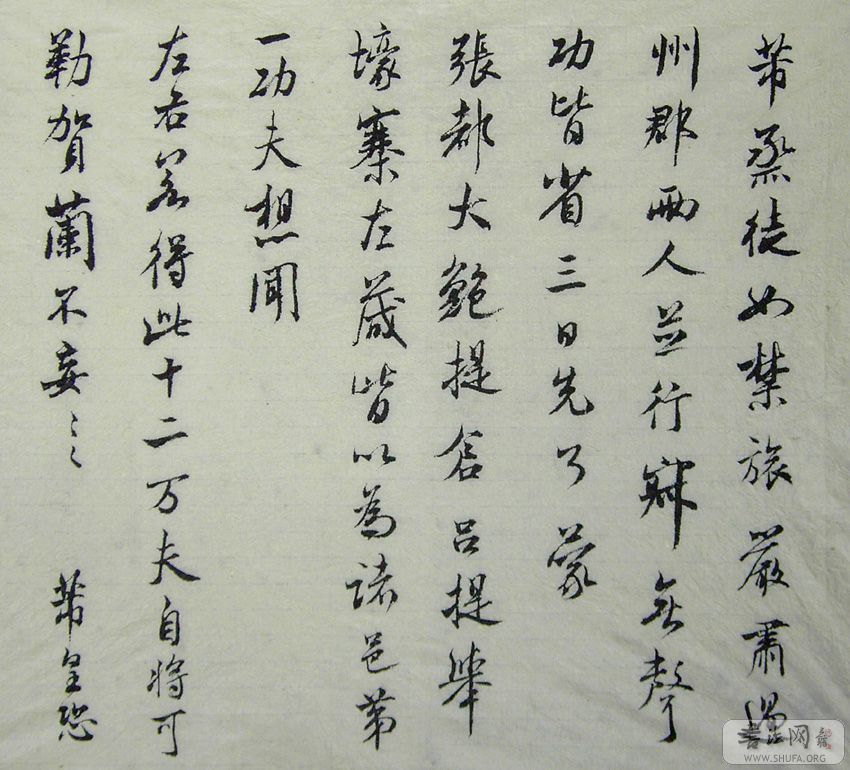 芾烝徒如禁旅嚴肅過
州郡兩人並行寂無聲
功皆省三日先了蒙
張都大鮑提倉呂提舉
壕寨左藏皆以為諸邑第
一功夫想聞
左右若得此十二万夫自將可
勒賀蘭不妄〻 芾皇恐
書法网
WWW.SHUFA.ORG